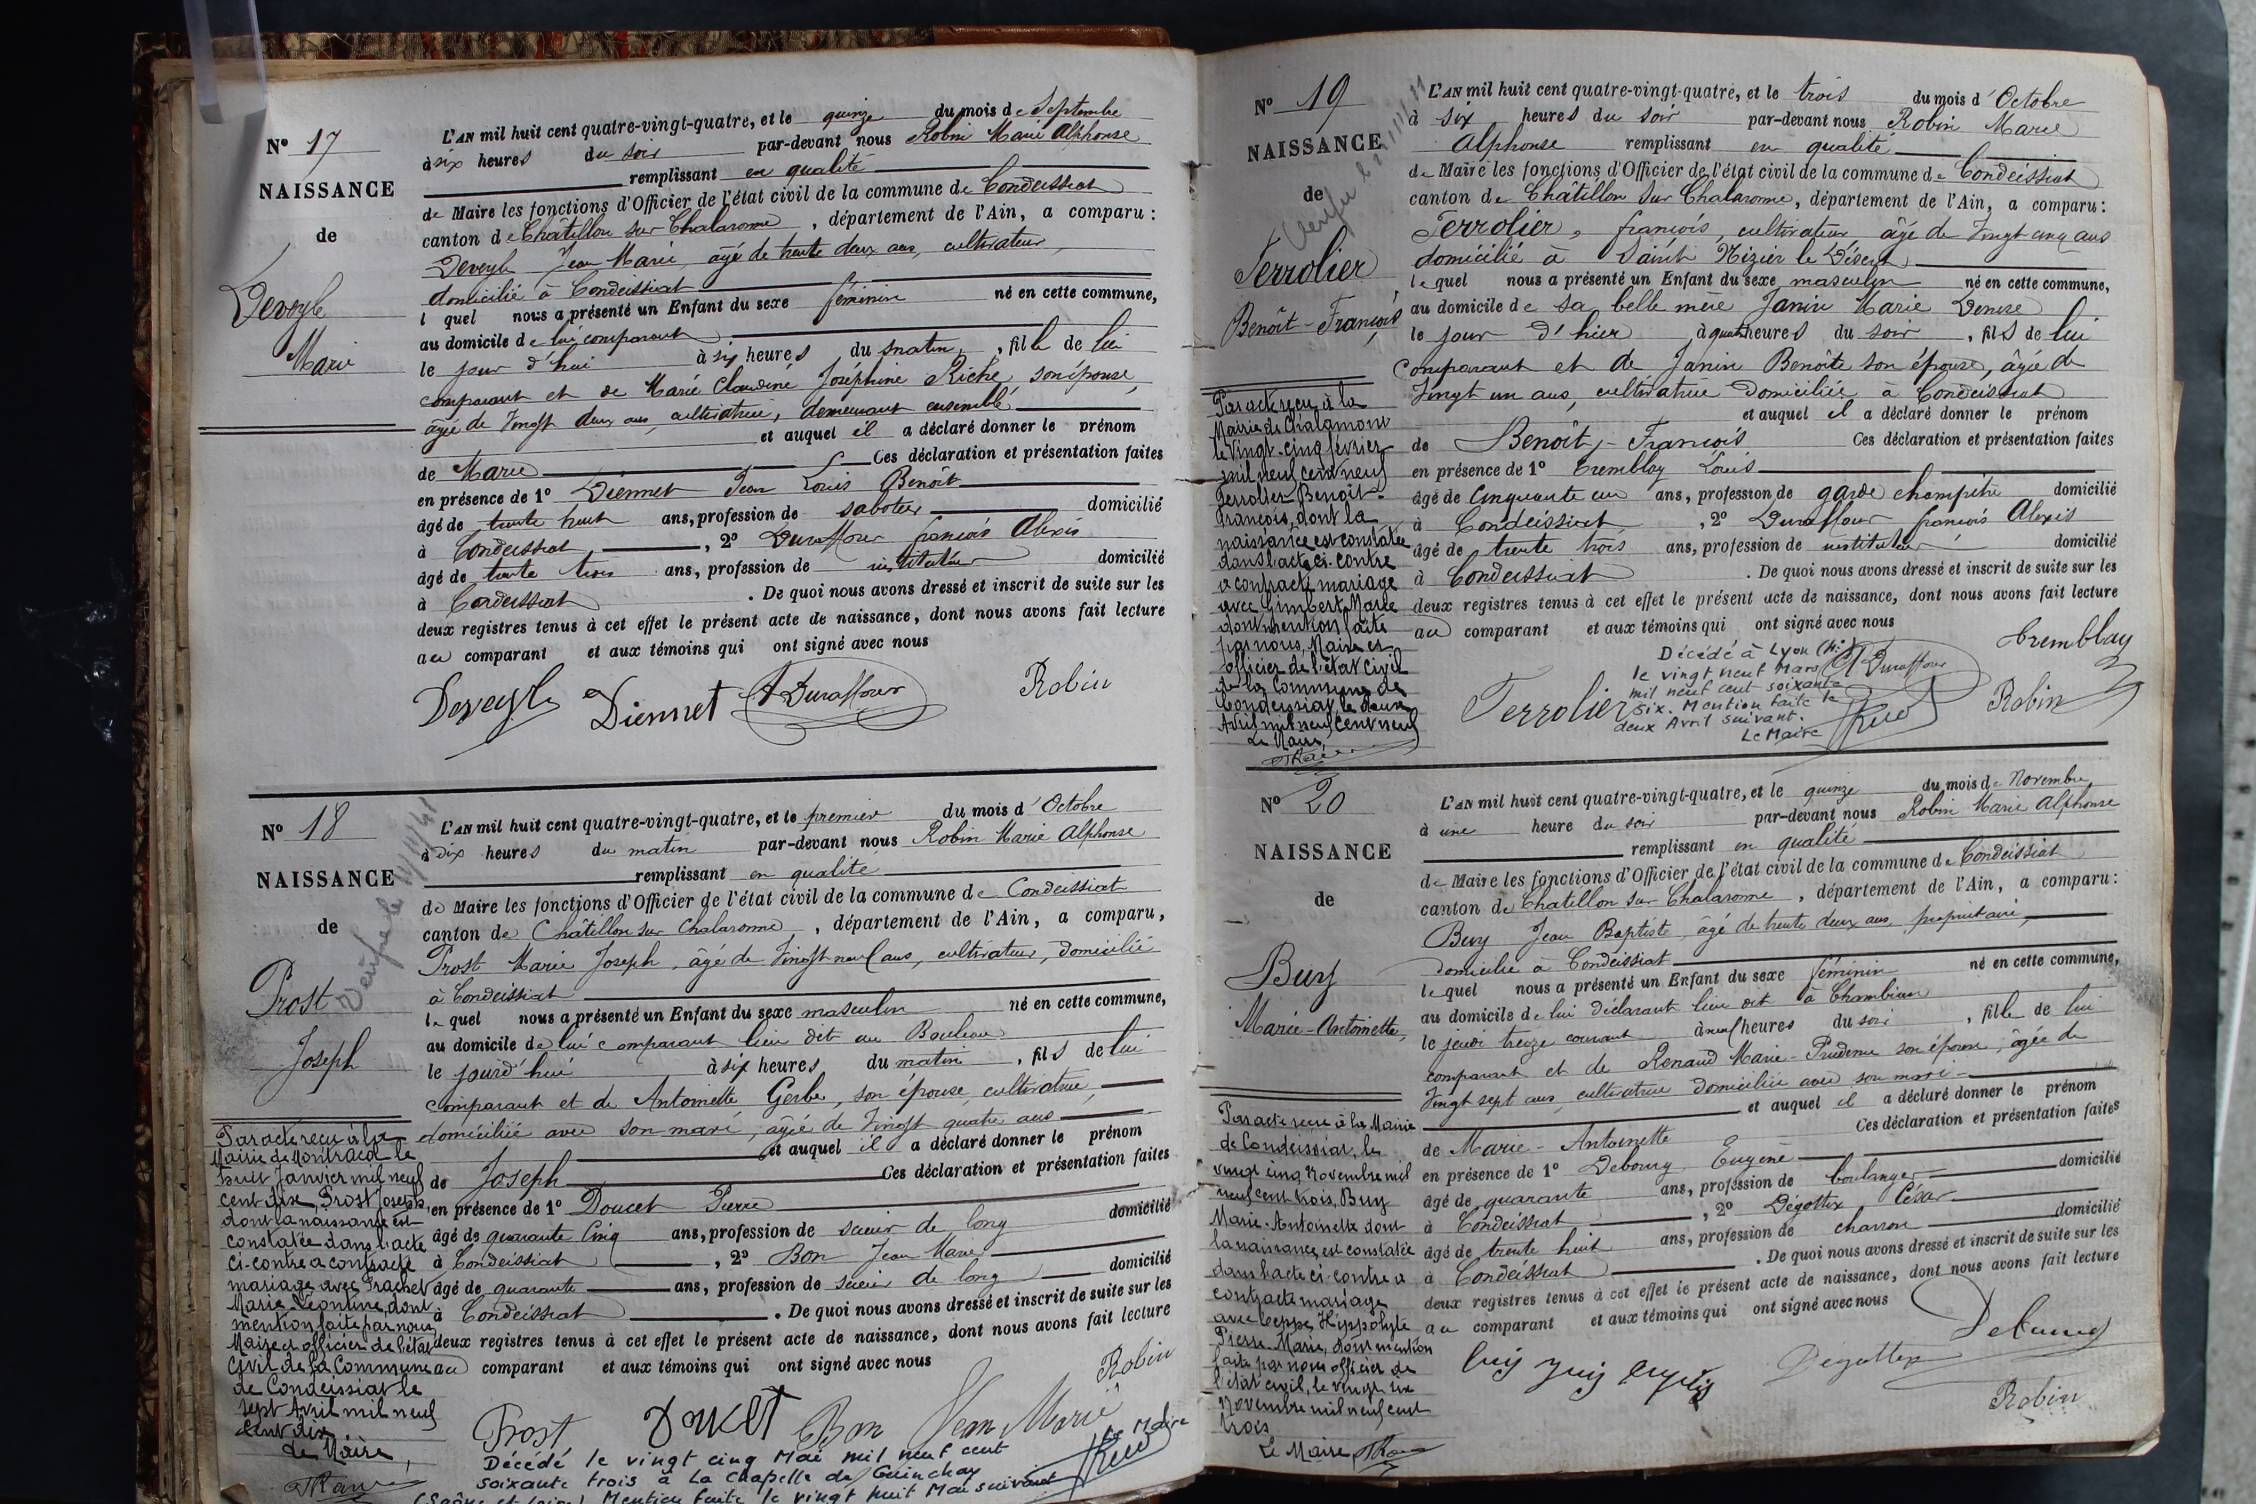 N° 17
NAISSANCE
de
Deveyle
Marie
L'AN mil huit cent quatre-vingt-quatre, et le quinze du mois de Septembre
à six heures du soir par-devant nous Robin Marie Alphonse
remplissant en qualité
de Maire les fonctions d'Officier de l'état civil de la commune de Condeissiat
canton de Châtillon sur Chalaronne, département de l'Ain, a comparu :
Deveyle Jean Marie, âgé de trente deux ans, cultivateur,
domicilié à Condeissiat
l quel nous a présenté un Enfant du sexe féminin né en cette commune,
au domicile de lui comparant
le jour d'hui à six heures du matin, fille de lui
comparant et de Marie Claudine Joséphine Riche son épouse,
âgée de Vingt deux ans, cultivatrice, demeurant ensemble
et auquel il a déclaré donner le prénom
de Marie Ces déclaration et présentation faites
en présence de 1° Diennet Jean Louis Benoît
âgé de trente huit ans, profession de sabotier domicilié
à Condeissiat, 2° Duraffour françois Alexis
âgé de trente trois ans, profession de instituteur domicilié
à Condeissiat. De quoi nous avons dressé et inscrit de suite sur les
deux registres tenus à cet effet le présent acte de naissance, dont nous avons fait lecture
au comparant et aux témoins qui ont signé avec nous
Deveyle Diennet A Duraffour Robin
N° 18
NAISSANCE
de
Prost
Joseph
Vérifié le
L'AN mil huit cent quatre-vingt-quatre, et le premier du mois d'Octobre
à dix heures du matin par-devant nous Robin Marie Alphonse
remplissant en qualité
de Maire les fonctions d'Officier de l'état civil de la commune de Condeissiat
canton de Châtillon sur Chalaronne, département de l'Ain, a comparu,
Prost Marie Joseph, âgé de Vingt neuf ans, cultivateur, domicilié
à Condeissiat
le quel nous a présenté un Enfant du sexe masculin né en cette commune,
au domicile de lui comparant lieu dit au Bouleau
le jourd'hui à six heures du matin, fils de lui
comparant et de Antoinette Gerbe, son épouse, cultivatrice,
domiciliée avec son mari, âgée de Vingt quatre ans
et auquel il a déclaré donner le prénom
de Joseph Ces déclaration et présentation faites
en présence de 1° Doucet Pierre
âgé de quarante cinq ans, profession de scieur de long domicilié
à Condeissiat, 2° Bon Jean Marie
âgé de quarante ans, profession de scieur de long domicilié
à Condeissiat. De quoi nous avons dressé et inscrit de suite sur les
deux registres tenus à cet effet le présent acte de naissance, dont nous avons fait lecture
au comparant et aux témoins qui ont signé avec nous
Prost Doucet Bon Jean Marie Robin
Décédé le vingt cinq Mai mil neuf cent
soixante trois à La Chapelle de Guinchay
(Saône et Loire) Mention faite le vingt huit Mai suivant
Le Maire
Par acte reçu à la
Mairie de Montracol le
huit Janvier mil neuf
cent dix, Prost Joseph,
dont la naissance est
constatée dans l'acte
ci-contre a contracté
mariage avec Trachet
Marie Léontine, dont
mention faite par nous
Maire et officier de l'état
civil de la Commune
de Condeissiat le
sept Avril mil neuf
cent dix
Le Maire,
N° 19
NAISSANCE
de
Ferrolier
Benoît-François
Vérifié le
L'AN mil huit cent quatre-vingt-quatre, et le trois du mois d'Octobre
à six heures du soir par-devant nous Robin Marie
Alphonse remplissant en qualité
de Maire les fonctions d'Officier de l'état civil de la commune de Condeissiat
canton de Châtillon sur Chalaronne, département de l'Ain, a comparu :
Ferrolier, françois, cultivateur âgé de Vingt cinq ans
domicilié à Saint Nizier le Désert
le quel nous a présenté un Enfant du sexe masculin né en cette commune,
au domicile de sa belle mère Janin Marie Denise
le jour d'hier à quatre heures du soir, fils de lui
comparant et de Janin Benoîte son épouse, âgée de
Vingt un ans, cultivatrice domiciliée à Condeissiat
et auquel il a déclaré donner le prénom
de Benoît-François Ces déclaration et présentation faites
en présence de 1° Tremblay Louis
âgé de Cinquante un ans, profession de garde champêtre domicilié
à Condeissiat, 2° Duraffour françois Alexis
âgé de trente trois ans, profession de instituteur domicilié
à Condeissiat. De quoi nous avons dressé et inscrit de suite sur les
deux registres tenus à cet effet le présent acte de naissance, dont nous avons fait lecture
au comparant et aux témoins qui ont signé avec nous
Ferrolier A Duraffour Tremblay Robin
Décédé à Lyon
le vingt neuf Mars
mil neuf cent soixante
six. Mention faite le
deux Avril suivant.
Le Maire
Par acte reçu à la
Mairie de Chalamont
le Vingt-cinq février
mil neuf cent neuf
Ferrolier Benoit-
François, dont la
naissance est constatée
dans l'acte ci-contre
a contracté mariage
avec Gimbert Marie
dont mention faite
par nous, Maire et
officier de l'état civil
de la Commune de
Condeissiat le deux
Avril mil neuf cent neuf
Le Maire,
N° 20
NAISSANCE
de
Buy
Marie-Antoinette,
L'AN mil huit cent quatre-vingt-quatre, et le quinze du mois de Novembre
à une heure du soir par-devant nous Robin Marie Alphonse
remplissant en qualité
de Maire les fonctions d'Officier de l'état civil de la commune de Condeissiat
canton de Chatillon sur Chalaronne, département de l'Ain, a comparu :
Buy Jean Baptiste âgé de trente deux ans, propriétaire,
domicilié à Condeissiat
le quel nous a présenté un Enfant du sexe féminin né en cette commune,
au domicile de lui déclarant lieu dit à
le jeudi treize courant à neuf heures du soir, fille de lui
comparant et de Renaud Marie-Prudence son épouse, âgée de
Vingt sept ans, cultivatrice domiciliée avec son mari
et auquel il a déclaré donner le prénom
de Marie-Antoinette Ces déclaration et présentation faites
en présence de 1° Debourg Eugène
âgé de quarante ans, profession de boulanger domicilié
à Condeissiat, 2° Dégottex César
âgé de trente huit ans, profession de charron domicilié
à Condeissiat. De quoi nous avons dressé et inscrit de suite sur les
deux registres tenus à cet effet le présent acte de naissance, dont nous avons fait lecture
au comparant et aux témoins qui ont signé avec nous
Debourg
Degottex
Robin
Par acte reçu à la Mairie
de Condeissiat, le
vingt cinq Novembre mil
neuf cent trois, Buy
Marie-Antoinette dont
la naissance est constatée
dans l'acte ci-contre a
contracté mariage
avec Ceppe Hyppolyte
Pierre-Marie, dont mention
faite par nous officier de
l'état civil, le vingt six
Novembre mil neuf cent
trois
Le Maire